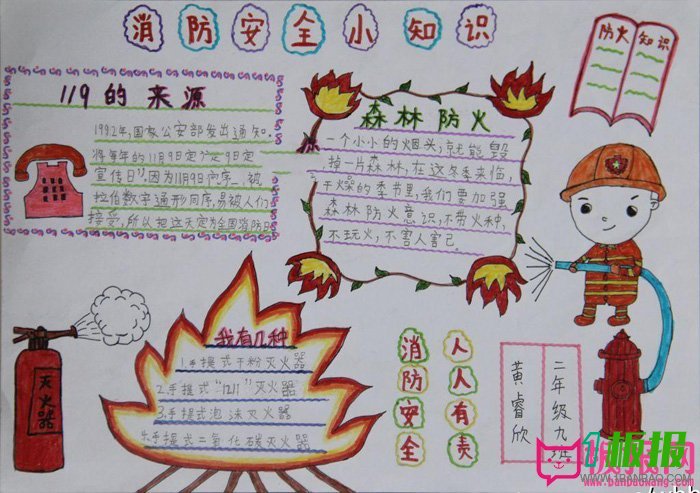 消防安全小知识
防火知识
119的来源
1992年,国家公安部发出通知,
将每年的11月9日定
宣传日",因为11月9日
拉伯数字
接受,所以把这天定为全国消防日
森林防火
一个小小的烟头,就能毁
掉一片森林,在这冬季来临,
干燥的季节里,我们要加强
森林防火意识,不带火种,
不玩火,不害人害己。
灭火器
我有几种
1.手提式干粉灭火器
2.手提式"1211"灭火器
3.手提式泡沫灭火器
手提式二氧化碳灭火器
消防安全
人人有责
二年级九班
黄睿欣
板报
www.banbaowang.com